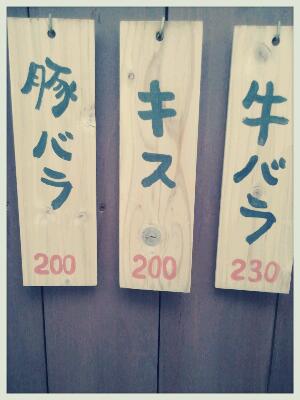 豚バラ
200
キス
200
牛バラ
230